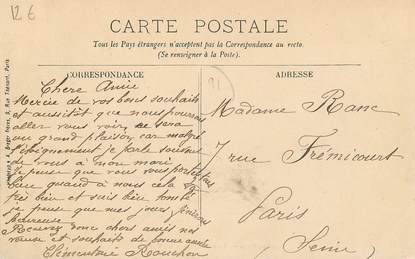 12 €
CARTE POSTALE
Tous les Pays étrangers n'acceptent pas la Correspondance au recto.
(Se renseigner à la Poste).
CORRESPONDANCE
ADRESSE
Chere Amie
Mercie de vos bons souhaits
et aussitôt que nous pourrons
aller vous voir ce sera
un grand plaisir car malgré
l'éloignement je parle souvent
de vous à mon mari
Je pense que vous vous portez
quand à nous cela va
très bien et suis bien
je pense que mes jours
heureuse
Recevez donc chers amis nos
voeux et souhaits de bonne année
Clémentine Rouchon
Madame Ranc
7 rue Frémicourt
Paris
(Seine)